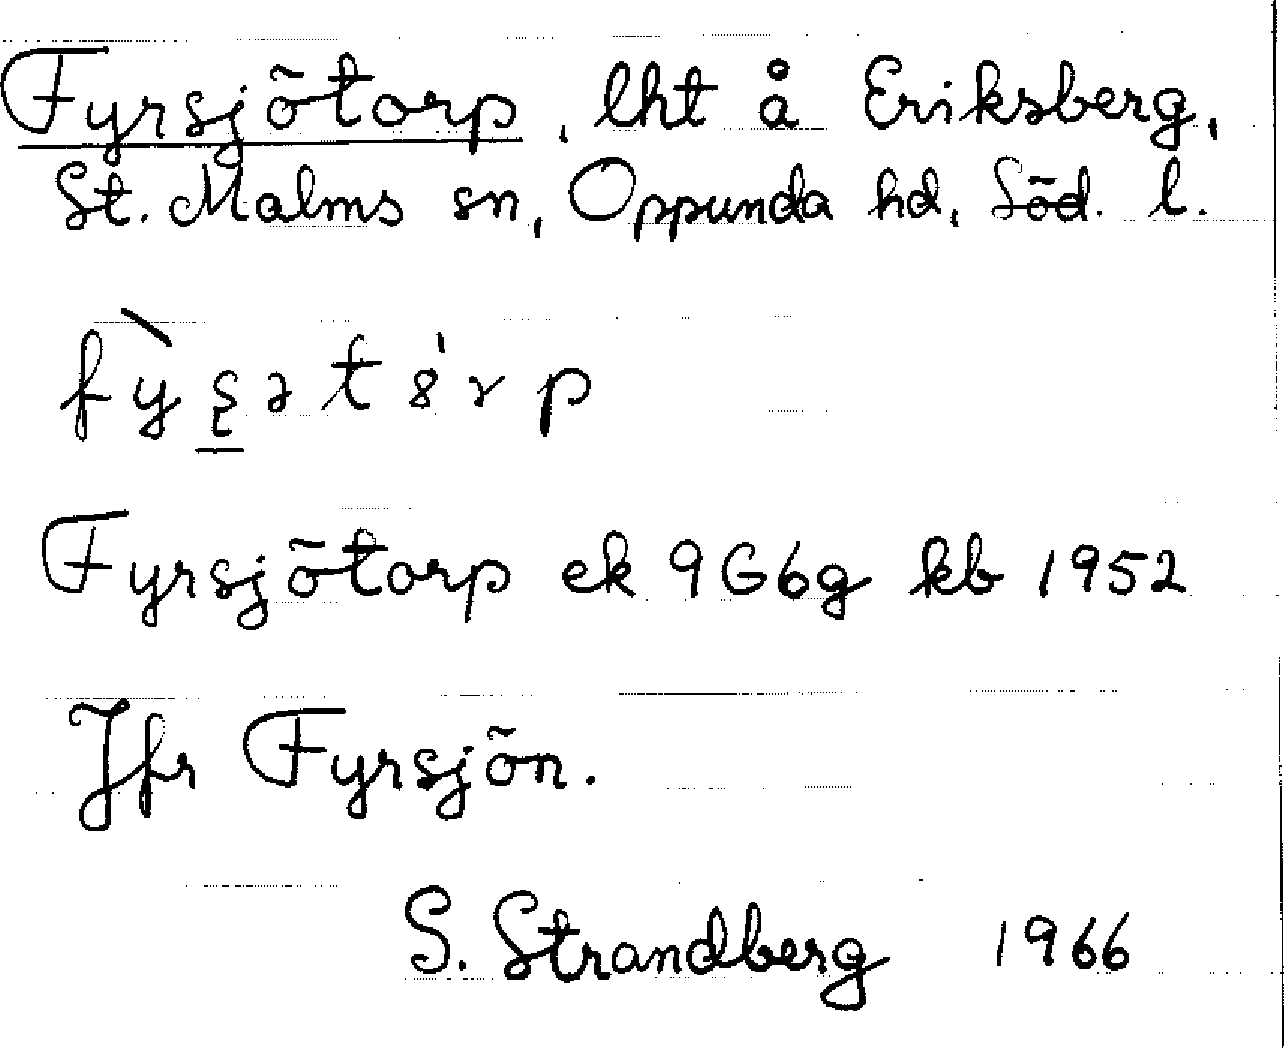 Fyrsjötorp, lht å Eriksberg,
St. Malms sn, Oppunda hd, Söd. l.
Fyrsjötorp ek 9G6g kb 1952
Jfr Fyrsjön.
S. Strandberg 1966